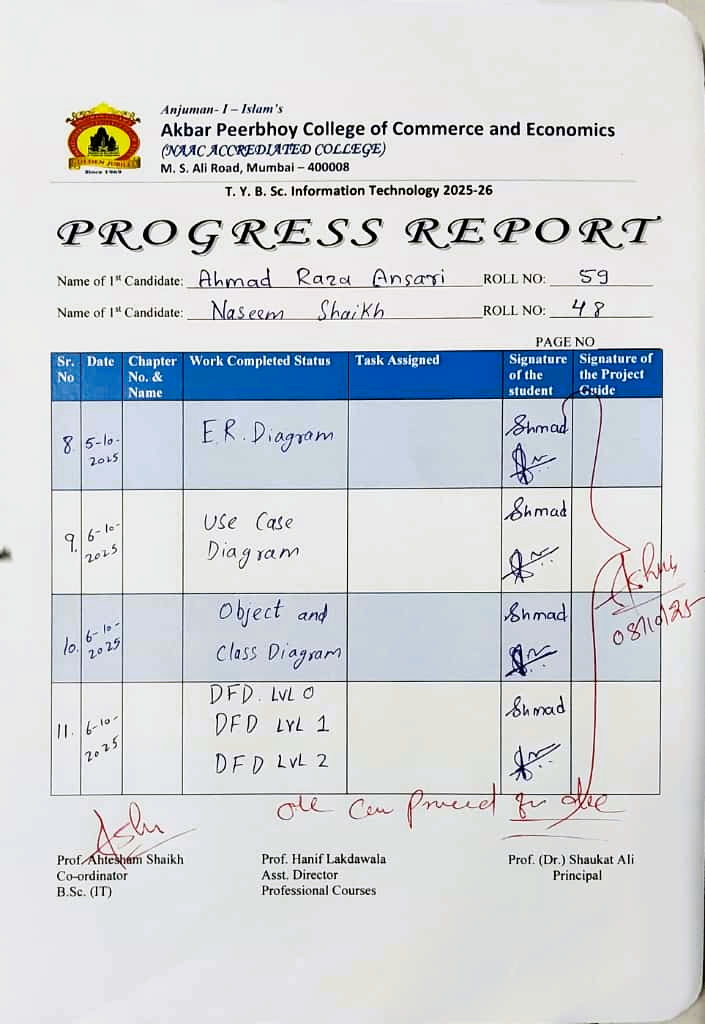 Anjuman- I – Islam's
Akbar Peerbhoy College of Commerce and Economics
(NAAC ACCREDIATED COLLEGE)
M. S. Ali Road, Mumbai – 400008
GOLDEN JUBILEE
Since 1969
T. Y. B. Sc. Information Technology 2025-26
PROGRESS REPORT
Name of 1st Candidate: Ahmad Raza Ansari ROLL NO: 59
Name of 1st Candidate: Naseem Shaikh ROLL NO: 48
PAGE NO
Sr. No Date Chapter No. & Name Work Completed Status Task Assigned Signature of the student Signature of the Project Guide
8. 5-10-2025 E.R. Diagram Ahmad
9. 6-10-2025 Use Case Diagram Ahmad
10. 6-10-2025 Object and Class Diagram Ahmad
08/10/25
11. 6-10-2025 DFD. LVL 0 Ahmad
DFD LVL 1
DFD LVL 2
Can Proceed for
Prof. Ahtesham Shaikh
Co-ordinator
B.Sc. (IT)
Prof. Hanif Lakdawala
Asst. Director
Professional Courses
Prof. (Dr.) Shaukat Ali
Principal